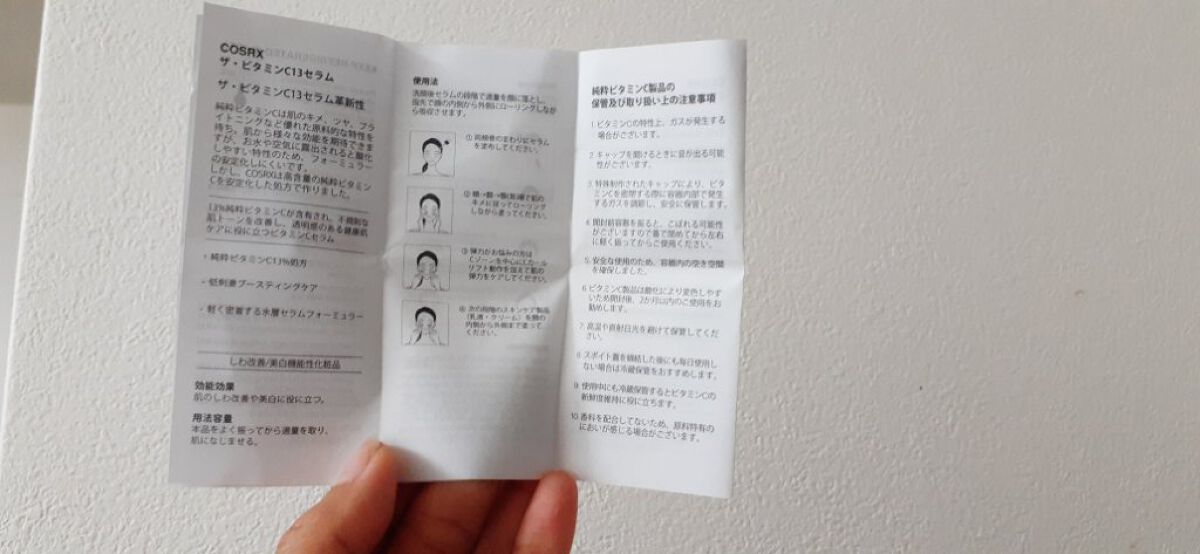 COSRX
ザ・ビタミンC13セラム
ザ・ビタミンC13セラム革新性
純粋ビタミンCは肌のキメ、ツヤ、ブラ
イトニングなど優れた原料的な特性を
持ち、肌から様々な効能を期待できま
すが、お水や空気に露出されると酸化
しやすい特性のため、フォーミュラー
の安定化しにくいです。
しかし、COSRXは高含量の純粋ビタミン
Cを安定化した処方で作りました。
13%純粋ビタミンCが含有され、不規則な
肌トーンを改善し、透明感のある健康肌
ケアに役に立つビタミンCセラム
・純粋ビタミンC13%処方
・低刺激ブースティングケア
・軽く密着する水層セラムフォーミュラー
しわ改善/美白機能性化粧品
効能効果
肌のしわ改善や美白に役に立つ。
用法容量
本品をよく振ってから適量を取り、
肌になじませる。
使用法
洗顔後セラムの段階で適量を顔に落とし、
指先で顔の内側から外側にローリングしなが
ら吸収させます。
① 両頬骨のまわりにセラム
を塗布してください。
キメに沿ってローリング
しながら塗ってください。
③ 弾力がお悩みの方は
Cゾーンを中心にCカール
リフト動作を加えて肌の
弾力をケアしてください。
④ 次の段階のスキンケア製品
(乳液・クリーム)を顔の
内側から外側まで塗って
ください。
純粋ビタミンC製品の
保管及び取り扱い上の注意事項
1. ビタミンCの特性上、ガスが発生する
場合がございます。
2. キャップを開けるときに音が出る可能
性がございます。
3. 特殊制作されたキャップにより、ビタ
ミンCを密閉する際に容器内部で発生
するガスを調節し、安全に保管します。
4. 開封前容器を振ると、こぼれる可能性
がございますので蓋で閉めてから左右
に軽く振ってからご使用ください。
5. 安全な使用のため、容器内の空き空間
を確保しました。
6. ビタミンC製品は酸化により変色しやす
いため開封後、2か月以内のご使用をお
勧めします。
7. 高温や直射日光を避けて保管してくだ
さい。
8. スポイト蓋を締結した後にも毎日使用し
ない場合は冷蔵保管をおすすめします。
9. 使用中にも冷蔵保管するとビタミンCの
新鮮度維持に役に立ちます。
10. 香料を配合してないため、原料特有の
においが感じる場合がございます。